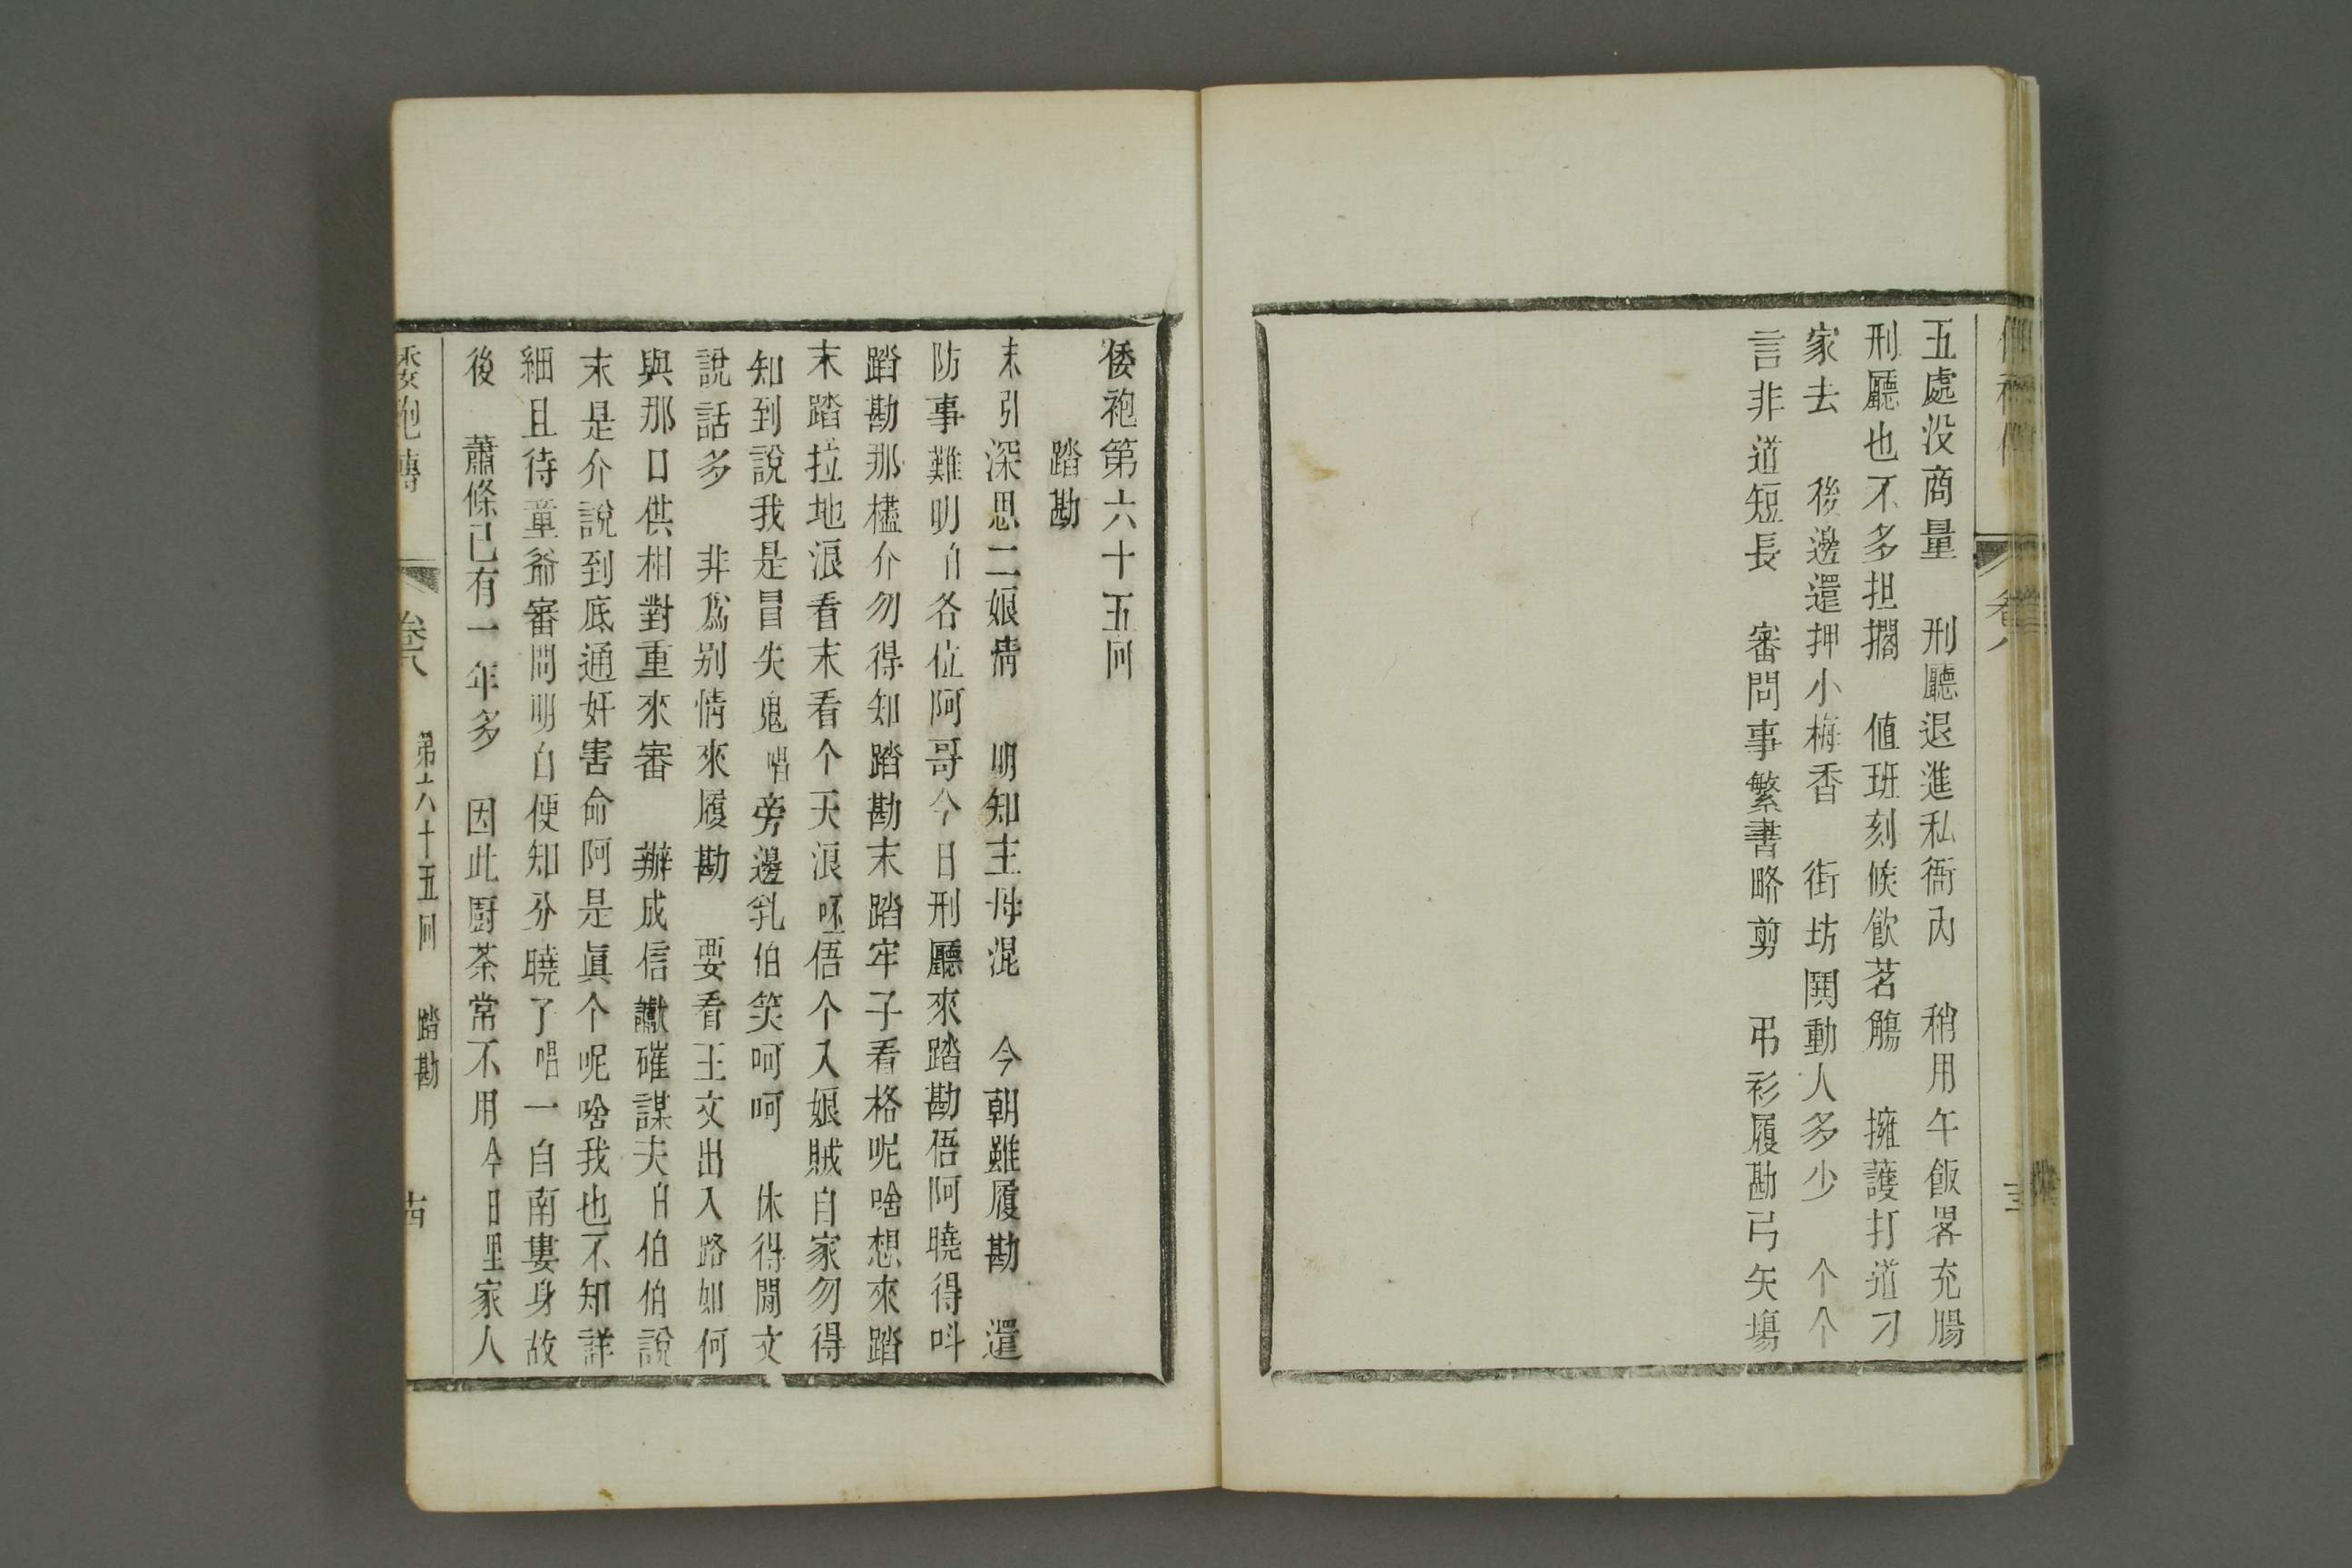 五處没商量　刑廳退進私衙内　稍用午飯畧充腸
刑廳也不多担擱　值班刻候飲茗觴　擁護打道刁
家去　後邊還押小梅香　街坊鬨動人多少　个个
言非道短長　審問事繁書略剪　弔衫履勘弓矢塲
倭袍第六十五回
踏勘
末引深思二娘情　明知主母混　今朝雖履勘　還
防事難明白各位阿哥今日刑廳來踏勘倍阿曉得呌
踏勘那橀介勿得知踏勘末踏牢子看格呢啥想來踏
末踏拉地浪看末看个天浪呸倍个入娘賊自家勿得
知到說我是冒失鬼唱旁邊乳伯笑呵呵　休得閒文
說話多　非爲别情來履勘　要看王文出入路如何
與那口供相對重來審　辦成信讞確謀夫白伯伯說
末是介說到底通奸害命阿是眞个呢啥我也不知詳
細且待童爺審問明白便知分曉了唱一自南婁身故
後　蕭條已有一年多　因此厨茶常不用今日里家人
倭袍傳　卷八　第六十五回　踏勘　十四